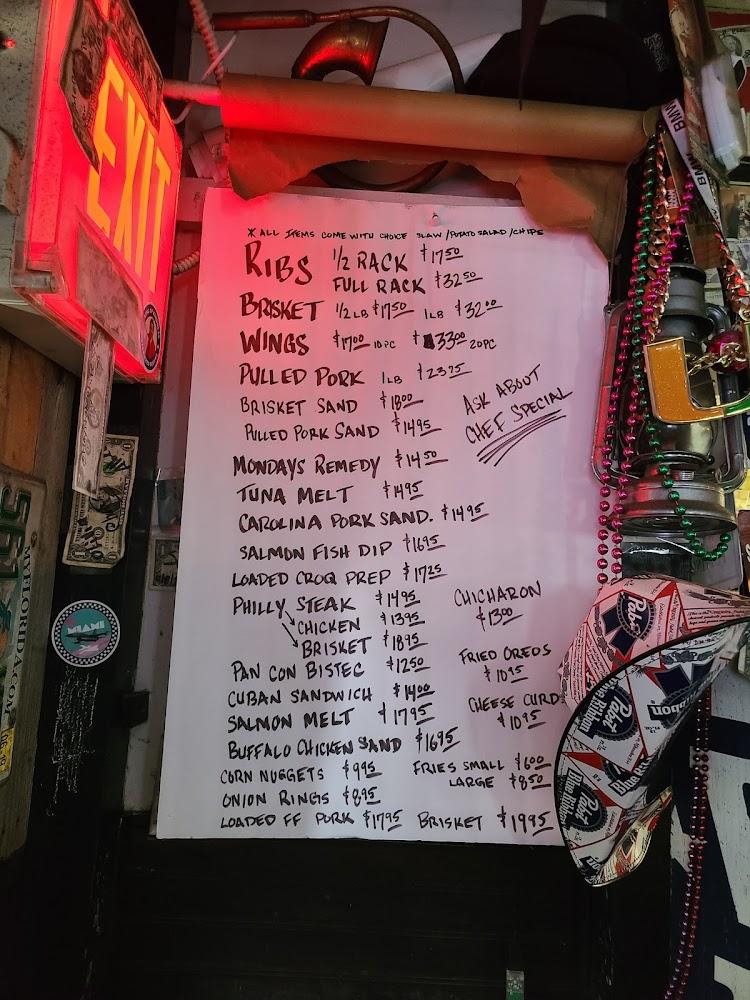 EXIT
BMW
* ALL ITEMS COME WITH CHOICE SLAW / POTATO SALAD / CHIPS
RIBS 1/2 RACK $17.50
FULL RACK $32.50
BRISKET 1/2 LB $17.50 1 LB $32.00
WINGS $17.00 10 PC $33.00 20 PC
PULLED PORK 1 LB $23.75
BRISKET SAND $18.00
PULLED PORK SAND $14.95
ASK ABOUT
CHEF SPECIAL
MONDAYS REMEDY $14.50
TUNA MELT $14.95
CAROLINA PORK SAND. $14.95
SALMON FISH DIP $16.95
LOADED CROQ PREP $17.25
PHILLY STEAK $14.95
CHICKEN $13.95
BRISKET $18.95
CHICHARON
$13.00
PAN CON BISTEC $12.50
FRIED OREOS
$10.95
CUBAN SANDWICH $14.00
SALMON MELT $17.95
CHEESE CURDS
$10.95
BUFFALO CHICKEN SAND $16.95
CORN NUGGETS $9.95
FRIES SMALL $6.00
LARGE $8.50
ONION RINGS $8.95
LOADED FF PORK $17.95 BRISKET $19.95
MIAMI
MYFLORIDA.COM
Pabst
Blue Ribbon